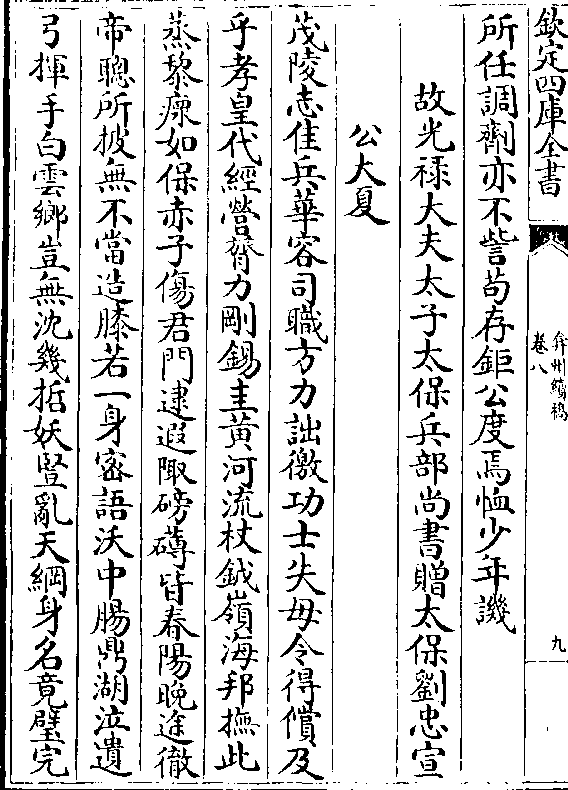 欽定四庫全書
弇州續稿
卷八
九
所任調劑亦不訾茍存鉅公度焉恤少年譏
故光祿大夫太子太保兵部尚書贈太保劉忠宣
公大夏
茂陵志佳兵華容司職方力詘徼功士失毋令得償及
乎孝皇代經營膂力剛錫圭黃河流杖鉞嶺海邦撫此
蒸黎瘝如保赤子傷君門逮遐陬磅礴皆春陽晚途徹
帝聰所披無不當造膝若一身密語沃中腸鼎湖泣遺
弓揮手白雲鄉豈無沈幾哲妖豎亂天綱身名竟璧完